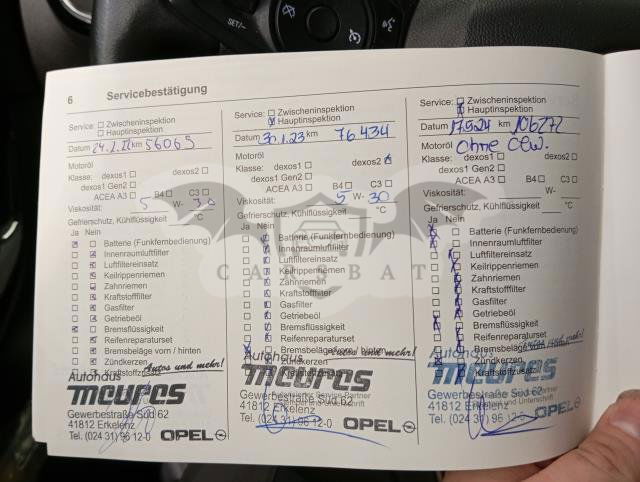 SET/-
6 Servicebestätigung
Service: Zwischeninspektion
Hauptinspektion
Datum 24.2.22 km 56065
Motoröl
Klasse: dexos1 dexos2
dexos1 Gen2
ACEA A3 B4 C3
Viskosität: 5 W- 30
Gefrierschutz, Kühlflüssigkeit °C
Ja Nein
Batterie (Funkfernbedienung)
Innenraumluftfilter
Luftfiltereinsatz
Keilrippenriemen
Zahnriemen
Kraftstofffilter
Gasfilter
Getriebeöl
Bremsflüssigkeit
Reifenreparaturset
Bremsbeläge vorn / hinten
Zündkerzen
Kraftstoffzusatz
Autos und mehr!
Autohaus
meures
Gewerbestraße Süd 62
41812 Erkelenz
Tel. (024 31) 96 12-0 OPEL
Service: Zwischeninspektion
Hauptinspektion
Datum 31.1.23 km 76434
Motoröl
Klasse: dexos1 dexos2
dexos1 Gen2
ACEA A3 B4 C3
Viskosität: 5 W- 30
Gefrierschutz, Kühlflüssigkeit °C
Ja Nein
Batterie (Funkfernbedienung)
Innenraumluftfilter
Luftfiltereinsatz
Keilrippenriemen
Zahnriemen
Kraftstofffilter
Gasfilter
Getriebeöl
Bremsflüssigkeit
Reifenreparaturset
Bremsbeläge vorn / hinten
Zündkerzen
Autos und mehr!
Autohaus
meures
Gewerbestraße Süd 62
41812 Erkelenz
Tel. (024 31) 96 12-0 OPEL
Service: Zwischeninspektion
Hauptinspektion
Datum 17.5.24 km 106272
Motoröl ohne Gew.
Klasse: dexos1 dexos2
dexos1 Gen2
ACEA A3 B4 C3
Viskosität: W-
Gefrierschutz, Kühlflüssigkeit °C
Ja Nein
Batterie (Funkfernbedienung)
Innenraumluftfilter
Luftfiltereinsatz
Keilrippenriemen
Zahnriemen
Kraftstofffilter
Gasfilter
Getriebeöl
Bremsflüssigkeit
Reifenreparaturset
Bremsbeläge vorn / hinten
Zündkerzen
Kraftstoffzusatz
Autohaus
meures
Gewerbestraße Süd 62
41812 Erkelenz
Tel. (024 31) 96 12-0 OPEL
CARSBAT